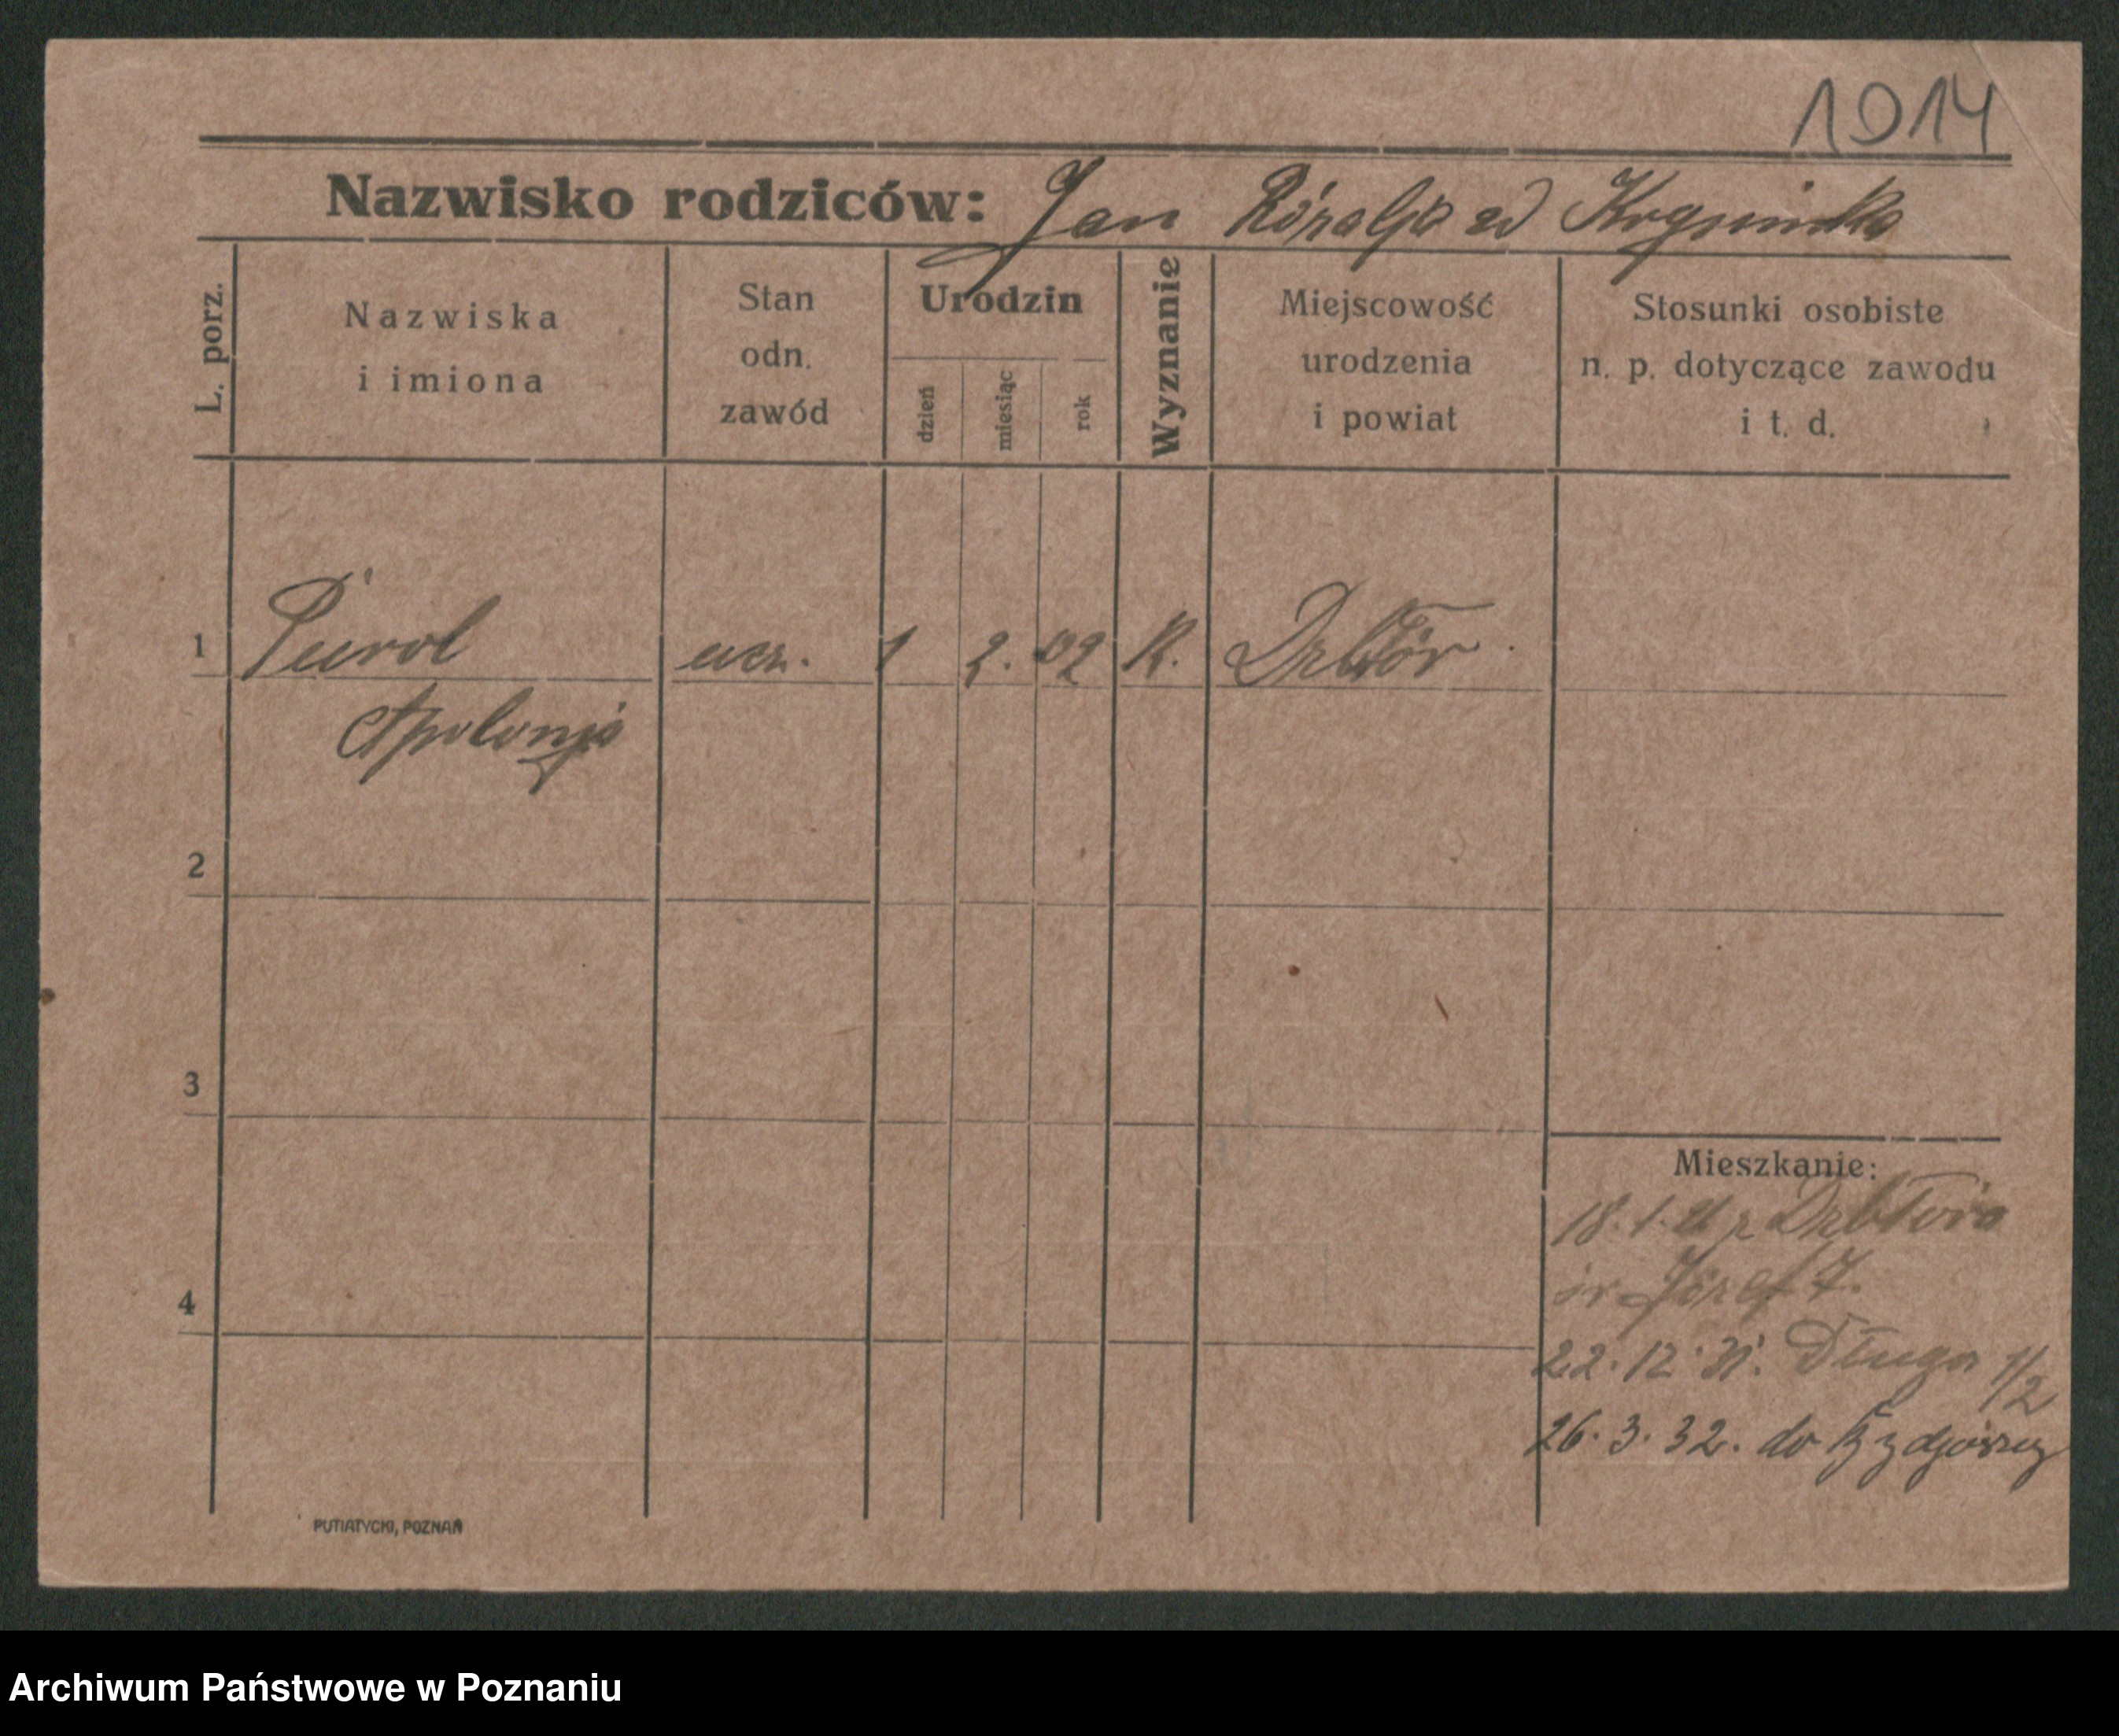 1014
Nazwisko rodziców: Jan Rózalja zd
L. porz.
Nazwiska
i imiona
Stan
odn.
zawód
Urodzin
dzień
miesiąc
rok
Wyznanie
Miejscowość
urodzenia
i powiat
Stosunki osobiste
n. p. dotyczące zawodu
i t. d.
1 ucz. 1 2. 02 K.
Apolonja
2
3
Mieszkanie:
18. 1. z
Józef 7.
4
22. 12. 31. Długa 1/2
26. 3. 32. do Bydgoszcz
PUTIATYCKI, POZNAŃ
Archiwum Państwowe w Poznaniu